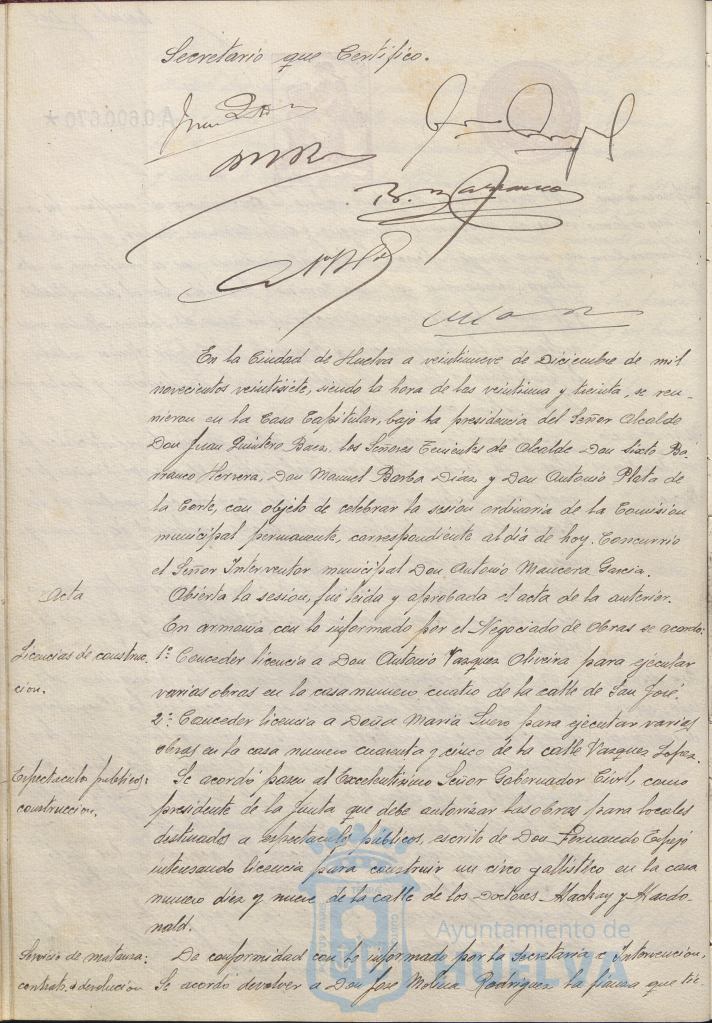 Secretario que Certifico.
En la Ciudad de Huelva a veintinueve de Diciembre de mil
novecientos veintisiete, siendo la hora de las veintiuna y treinta, se reu-
nieron en la Casa Capitular, bajo la presidencia del Señor Alcalde
Don Juan Quintero Baez, los Señores Tenientes de Alcalde Don Sixto Ba-
rranco Herrera, Don Manuel Barba Diaz y Don Antonio Plata de
la Corte, con objeto de celebrar la sesion ordinaria de la Comision
municipal permanente, correspondiente al dia de hoy. Concurrio
el Señor Interventor municipal Don Antonio Mancera Garcia.
Acta
Abierta la sesion, fué leida y aprobada el acta de la anterior.
En armonia con lo informado por el Negociado de Obras se acordo:
Licencias de construc-
cion.
1º Conceder licencia a Don Antonio Vazquez Oliveira para ejecutar
varias obras en la casa numero cuatro de la calle de San José.
2º Conceder licencia a Doña Maria Suero para ejecutar varias
obras en la casa numero cuarenta y cinco de la calle Vazquez Lopez.
Espectaculos publicos:
construccion.
Se acordó pasen al Excelentisimo Señor Gobernador Civil, como
presidente de la Junta que debe autorizar las obras para locales
destinados a espectaculos públicos, escrito de Don Fernando Espejo
interesando licencia para construir un circo gallistico en la casa
numero diez y nueve de la calle de los Doctores Mackay y Macdo-
nald.
Servicio de matanza:
contrata devolucion
De conformidad con lo informado por la Secretaria e Intervencion,
Se acordó devolver a Don José Molina Rodriguez la fianza que tie-
Ayuntamiento de
HUELVA